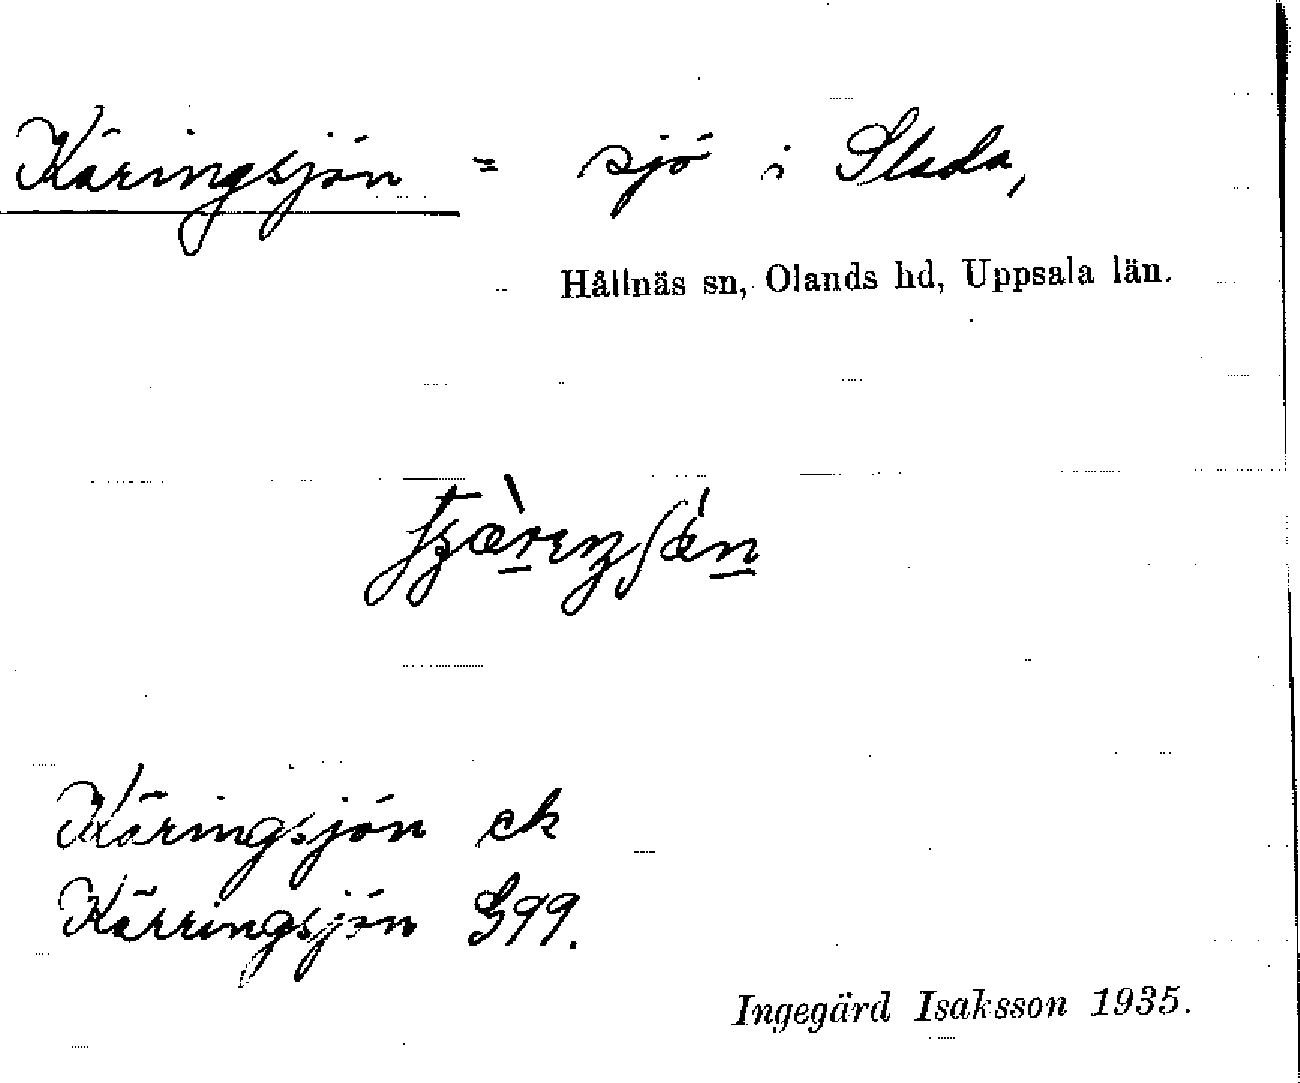 Käringsjön = sjö i Slada,
Hållnäs sn, Olands hd, Uppsala län.
Käringsjön ek
Kärringsjön G99.
Ingegärd Isaksson 1935.